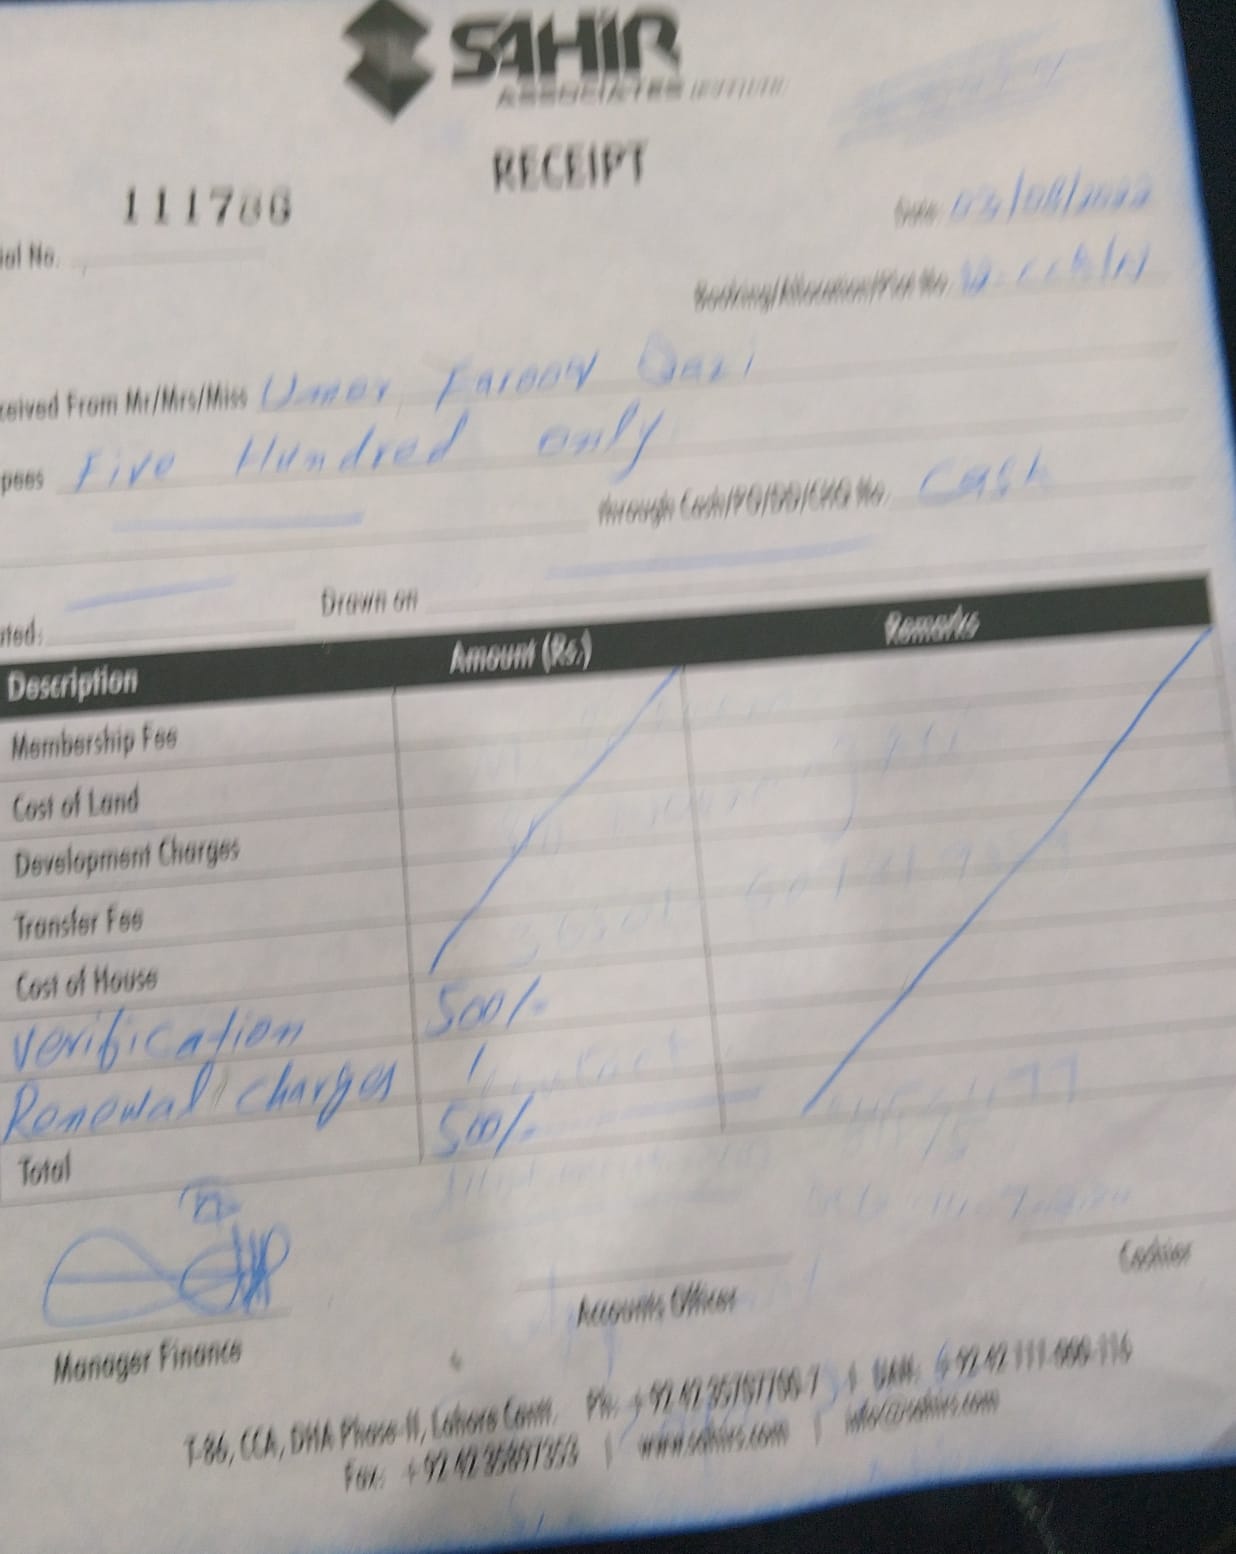 SAHIR
ASSOCIATES (PVT) LTD.
RECEIPT
111786
ial No.
Date: 03/08/2022
Booking/Allocation/Plot No.
ceived From Mr/Mrs/Miss Umer Farooq Qazi
pees Five Hundred only
through Cash/PO/DD/CHQ No. Cash
ated: Drawn on
Description Amount (Rs.) Remarks
Membership Fee
Cost of Land
Development Charges
Transfer Fee
Cost of House
Verification 500/-
Renewal Charges
Total 500/-
Manager Finance
Accounts Officer
Cashier
T-86, CCA, DHA Phase-II, Lahore Cantt. Ph: +92 42 35707700-7 | UAN: +92 42 111-000-116
Fax: +92 42 35897353 | www.sahirs.com | info@sahirs.com